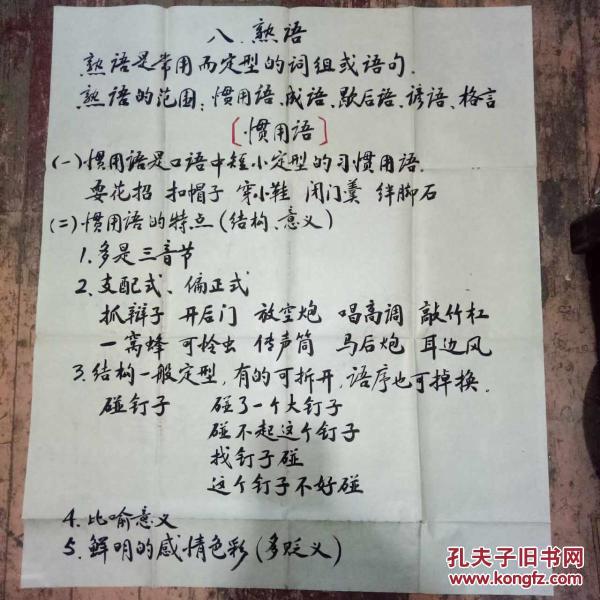 八、熟语
熟语是常用而定型的词组或语句.
熟语的范围:惯用语、成语、歇后语、谚语、格言
[惯用语]
(一)惯用语是口语中短小定型的习惯用语.
耍花招 扣帽子 穿小鞋 闭门羹 绊脚石
(二)惯用语的特点(结构、意义)
1.多是三音节
2.支配式、偏正式
抓辫子 开后门 放空炮 唱高调 敲竹杠
一窝蜂 可怜虫 传声筒 马后炮 耳边风
3.结构一般定型,有的可拆开,语序也可掉换.
碰钉子 碰了一个大钉子
碰不起这个钉子
找钉子碰
这个钉子不好碰
4.比喻意义
5.鲜明的感情色彩(多贬义)
孔夫子旧书网
www.kongfz.com